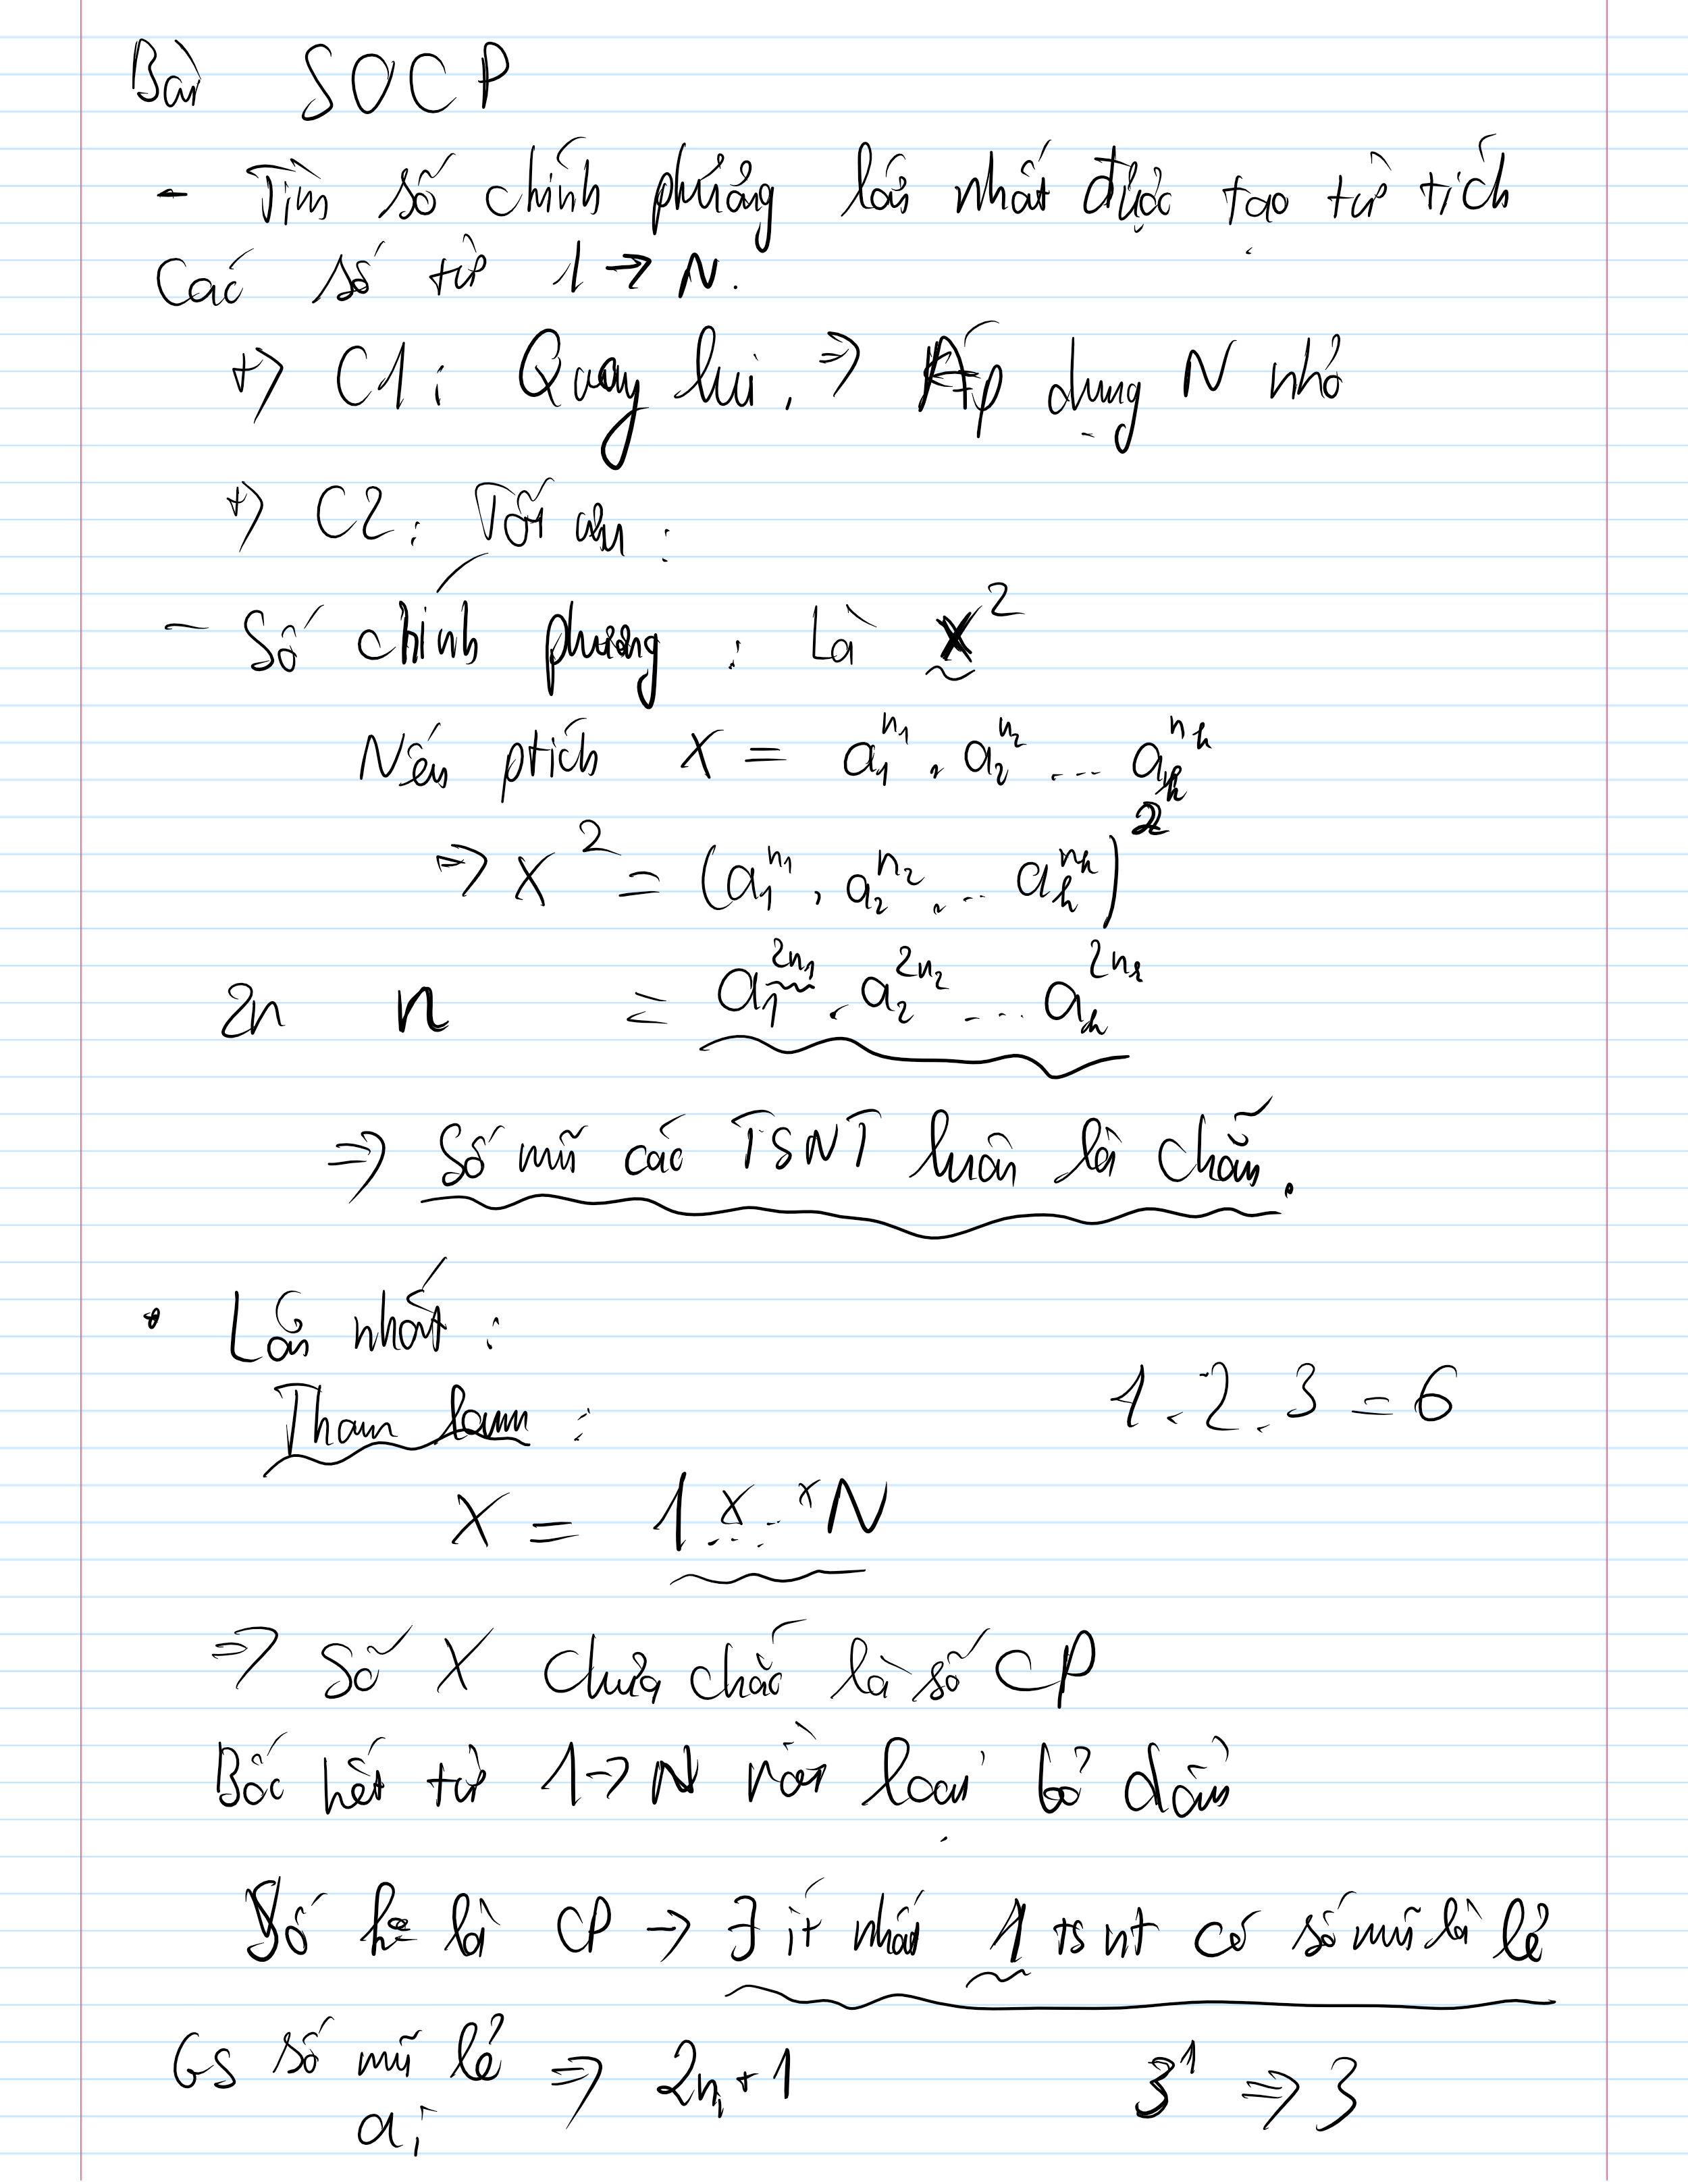 Bài SOCP
- Tìm số chính phương lớn nhất được tạo từ tích
các số từ 1 → N.
+> C1: Quay lui. => Áp dụng N nhỏ
+> C2: Tối ưu:
- Số chính phương: Là x²
Nếu ptích X = a₁^n₁ . a₂^n₂ ... aₖ^nₖ
=> X² = (a₁^n₁ . a₂^n₂ ... aₖ^nₖ)²
2n n = a₁^2n₁ . a₂^2n₂ ... aₖ^2nₖ
=> Số mũ các TSNT luôn là chẵn.
• Lớn nhất:
Tham lam: 1.2.3 = 6
X = 1 x ... x N
=> Số X chưa chắc là số CP
Bốc hết từ 1 → N rồi loại bỏ dần
Số k là CP → ∃ ít nhất 1 tsnt có số mũ là lẻ
Gs số mũ lẻ => 2nᵢ+1 3¹ => 3
aᵢ